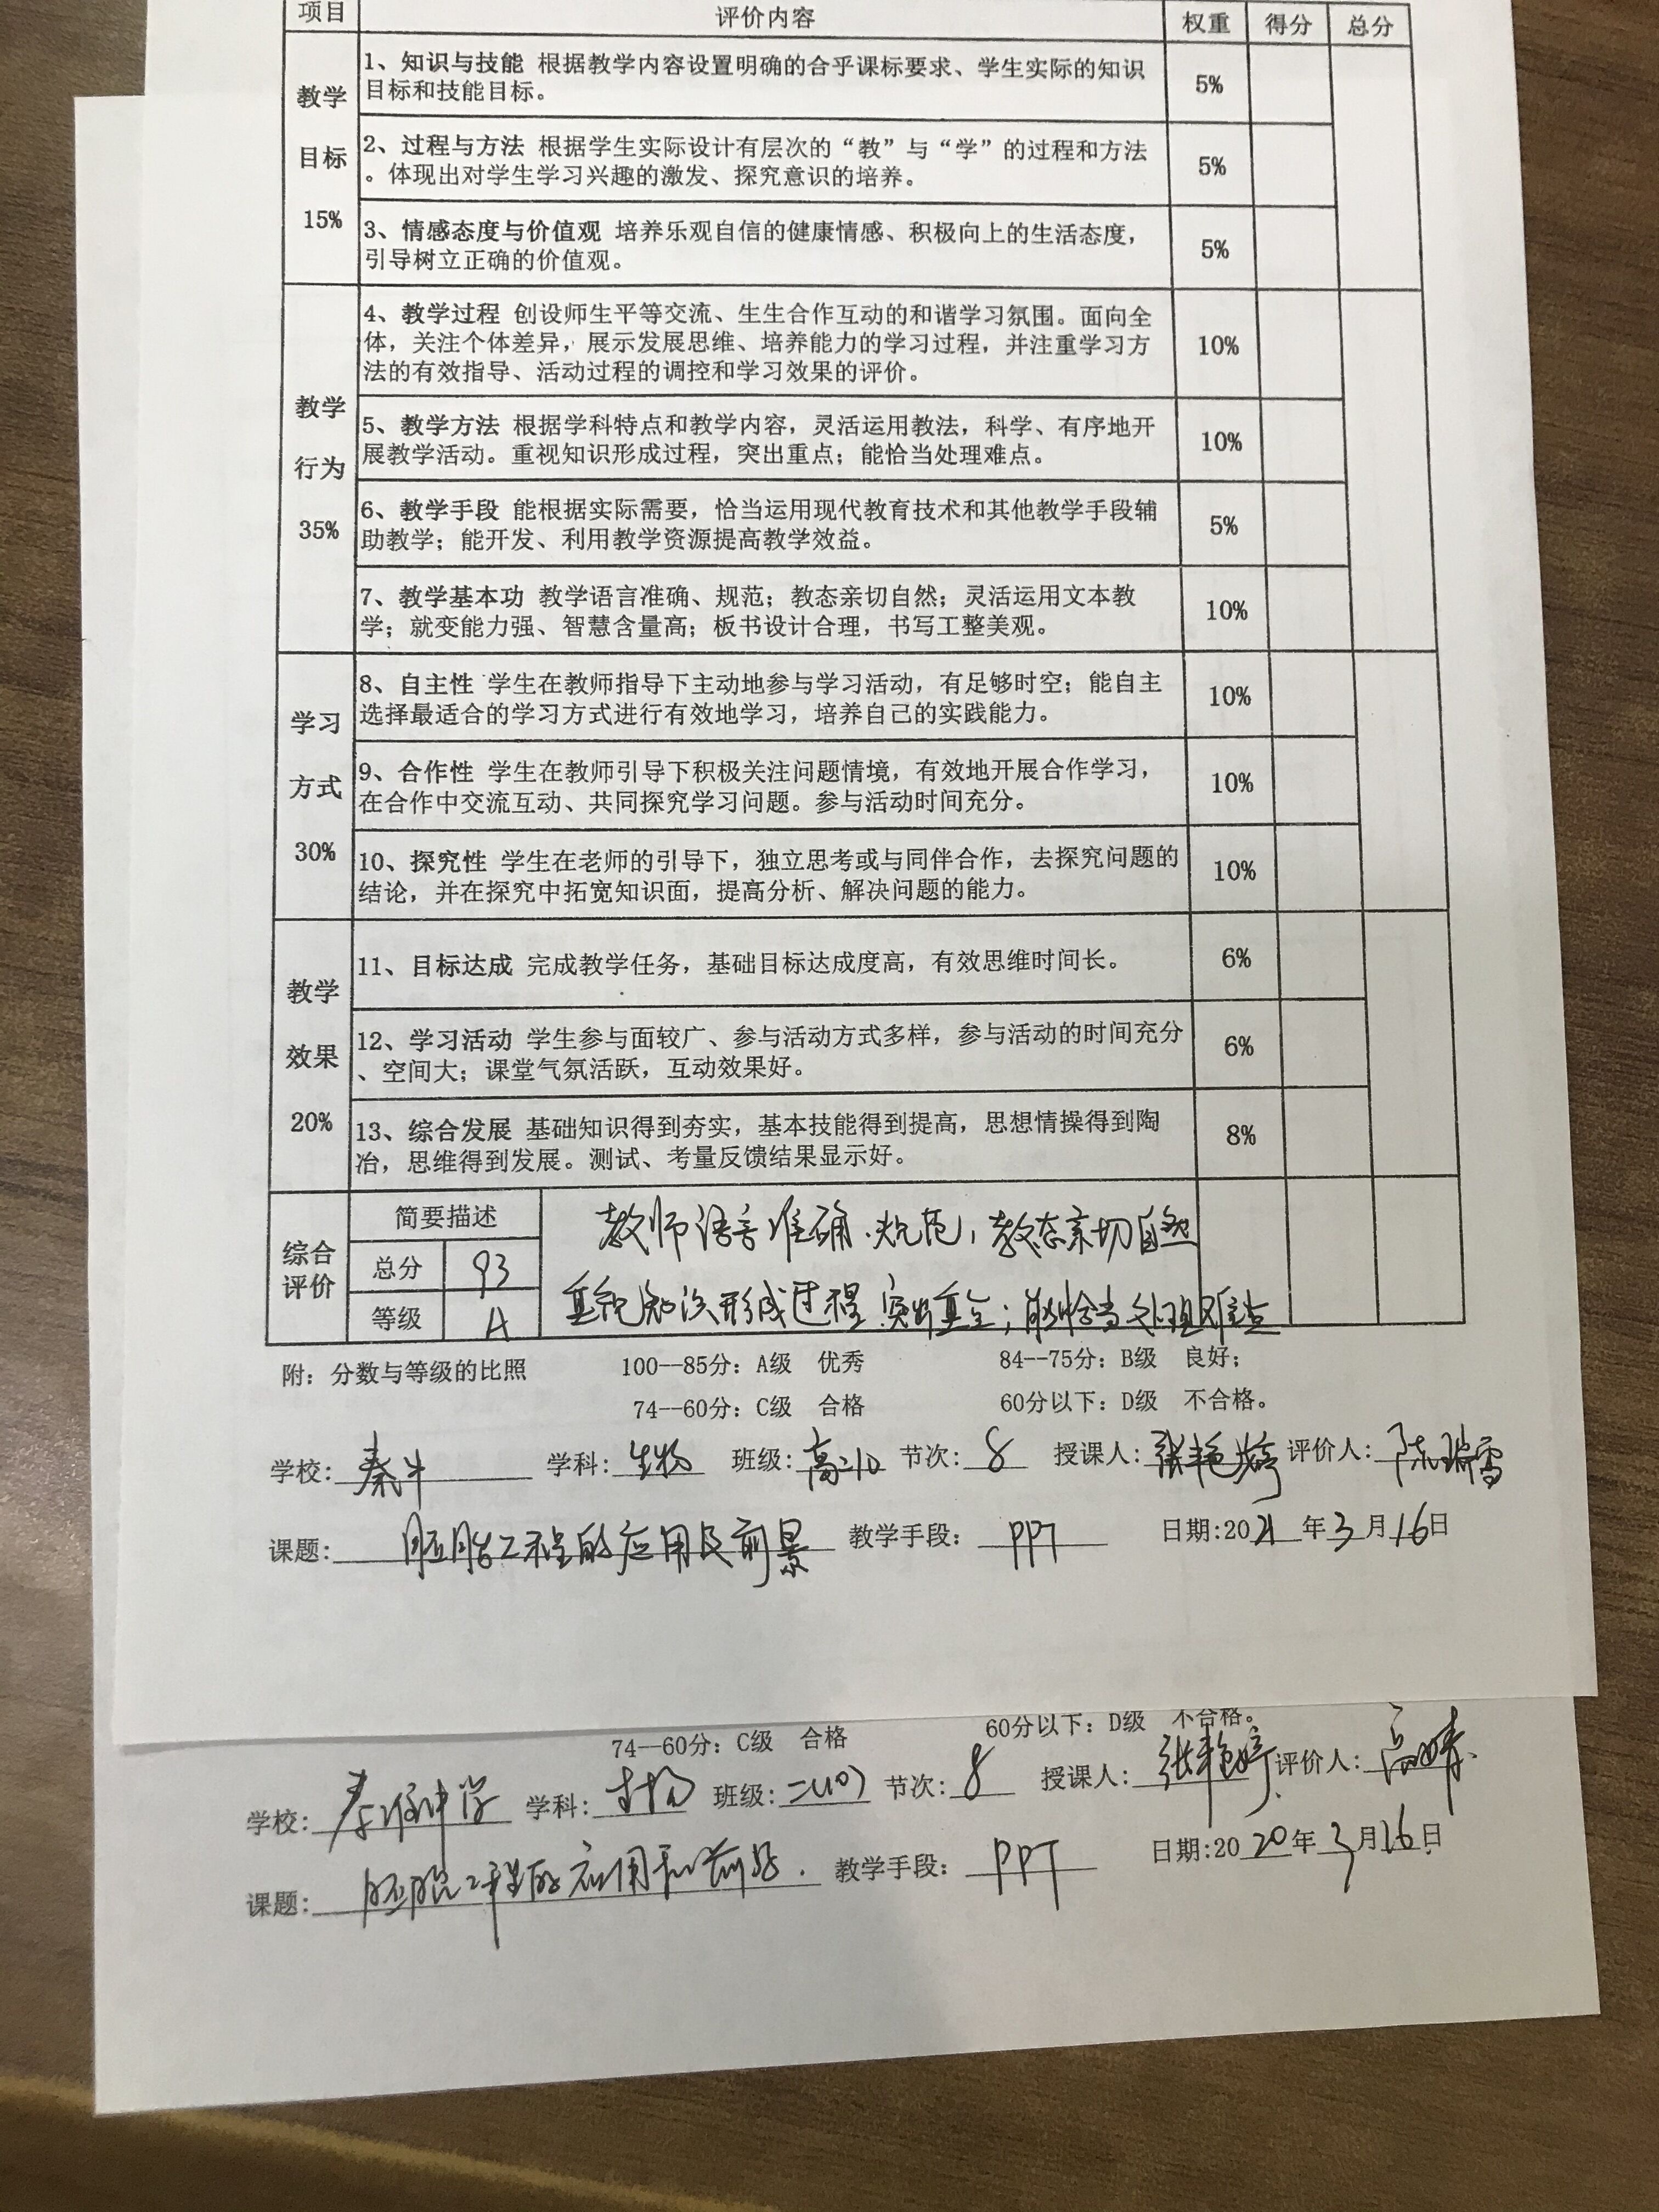 项目 评价内容 权重 得分 总分
教学
目标
15%
1、知识与技能 根据教学内容设置明确的合乎课标要求、学生实际的知识
目标和技能目标。
5%
2、过程与方法 根据学生实际设计有层次的“教”与“学”的过程和方法
。体现出对学生学习兴趣的激发、探究意识的培养。
5%
3、情感态度与价值观 培养乐观自信的健康情感、积极向上的生活态度，
引导树立正确的价值观。
5%
教学
行为
35%
4、教学过程 创设师生平等交流、生生合作互动的和谐学习氛围。面向全
体，关注个体差异，展示发展思维、培养能力的学习过程，并注重学习方
法的有效指导、活动过程的调控和学习效果的评价。
10%
5、教学方法 根据学科特点和教学内容，灵活运用教法，科学、有序地开
展教学活动。重视知识形成过程，突出重点；能恰当处理难点。
10%
6、教学手段 能根据实际需要，恰当运用现代教育技术和其他教学手段辅
助教学；能开发、利用教学资源提高教学效益。
5%
7、教学基本功 教学语言准确、规范；教态亲切自然；灵活运用文本教
学；就变能力强、智慧含量高；板书设计合理，书写工整美观。
10%
学习
方式
30%
8、自主性 学生在教师指导下主动地参与学习活动，有足够时空；能自主
选择最适合的学习方式进行有效地学习，培养自己的实践能力。
10%
9、合作性 学生在教师引导下积极关注问题情境，有效地开展合作学习，
在合作中交流互动、共同探究学习问题。参与活动时间充分。
10%
10、探究性 学生在老师的引导下，独立思考或与同伴合作，去探究问题的
结论，并在探究中拓宽知识面，提高分析、解决问题的能力。
10%
教学
效果
20%
11、目标达成 完成教学任务，基础目标达成度高，有效思维时间长。
6%
12、学习活动 学生参与面较广、参与活动方式多样，参与活动的时间充分
、空间大；课堂气氛活跃，互动效果好。
6%
13、综合发展 基础知识得到夯实，基本技能得到提高，思想情操得到陶
冶，思维得到发展。测试、考量反馈结果显示好。
8%
综合
评价
简要描述
总分 93
等级 A
教师语言准确、规范，教态亲切自然
重视知识形成过程 突出重点；能恰当处理难点
附：分数与等级的比照 100--85分：A级 优秀 84--75分：B级 良好；
74--60分：C级 合格 60分以下：D级 不合格。
学校： 秦中 学科：生物 班级：高二10 节次：8 授课人：张艳婷 评价人：陈瑞雪
课题： 胚胎工程的应用及前景 教学手段： PPT 日期:2021年3月16日
74--60分：C级 合格 60分以下：D级 不合格。
学校： 中学 学科：生物 班级：二(10) 节次：8 授课人：张艳婷 评价人：
课题： 胚胎工程的应用和前景. 教学手段： PPT 日期:2020年3月16日